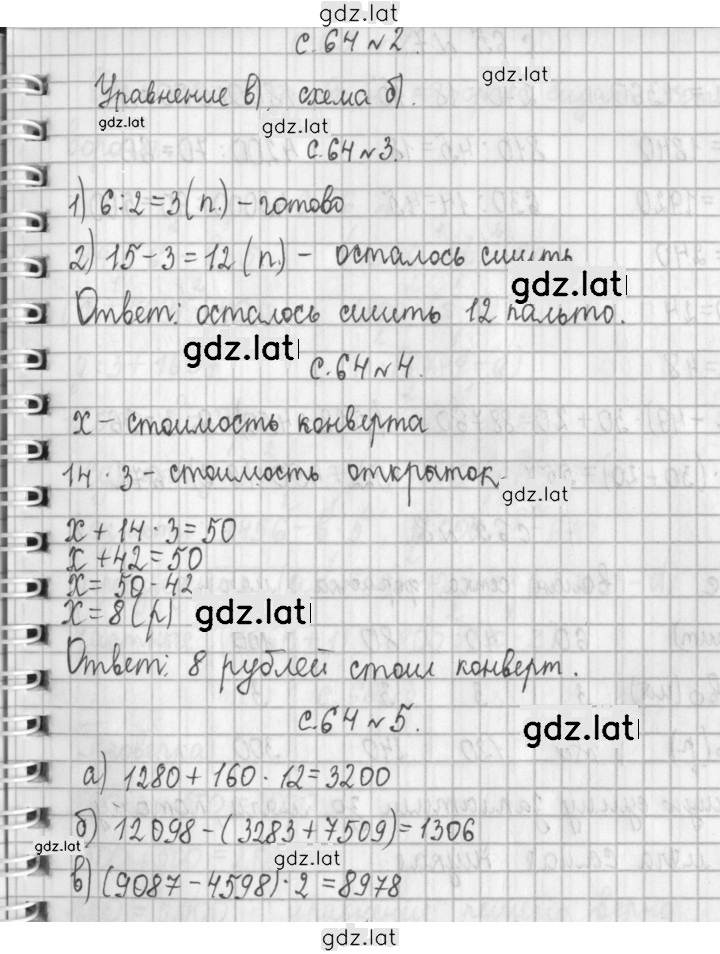 gdz.lat
с. 64 № 2.
gdz.lat
Уравнение в), схема б).
gdz.lat
gdz.lat
с. 64 № 3.
1) 6 : 2 = 3 (п.) - готово
2) 15 - 3 = 12 (п.) - осталось сшить
gdz.lat
Ответ: осталось сшить 12 пальто.
gdz.lat
с. 64 № 4.
х - стоимость конверта
14 · 3 - стоимость открыток.
gdz.lat
х + 14 · 3 = 50
х + 42 = 50
х = 50 - 42
х = 8 (р)
gdz.lat
Ответ: 8 рублей стоил конверт.
с. 64 № 5.
gdz.lat
а) 1280 + 160 · 12 = 3200
б) 12098 - (3283 + 7509) = 1306
gdz.lat
gdz.lat
в) (9087 - 4598) · 2 = 8978
gdz.lat